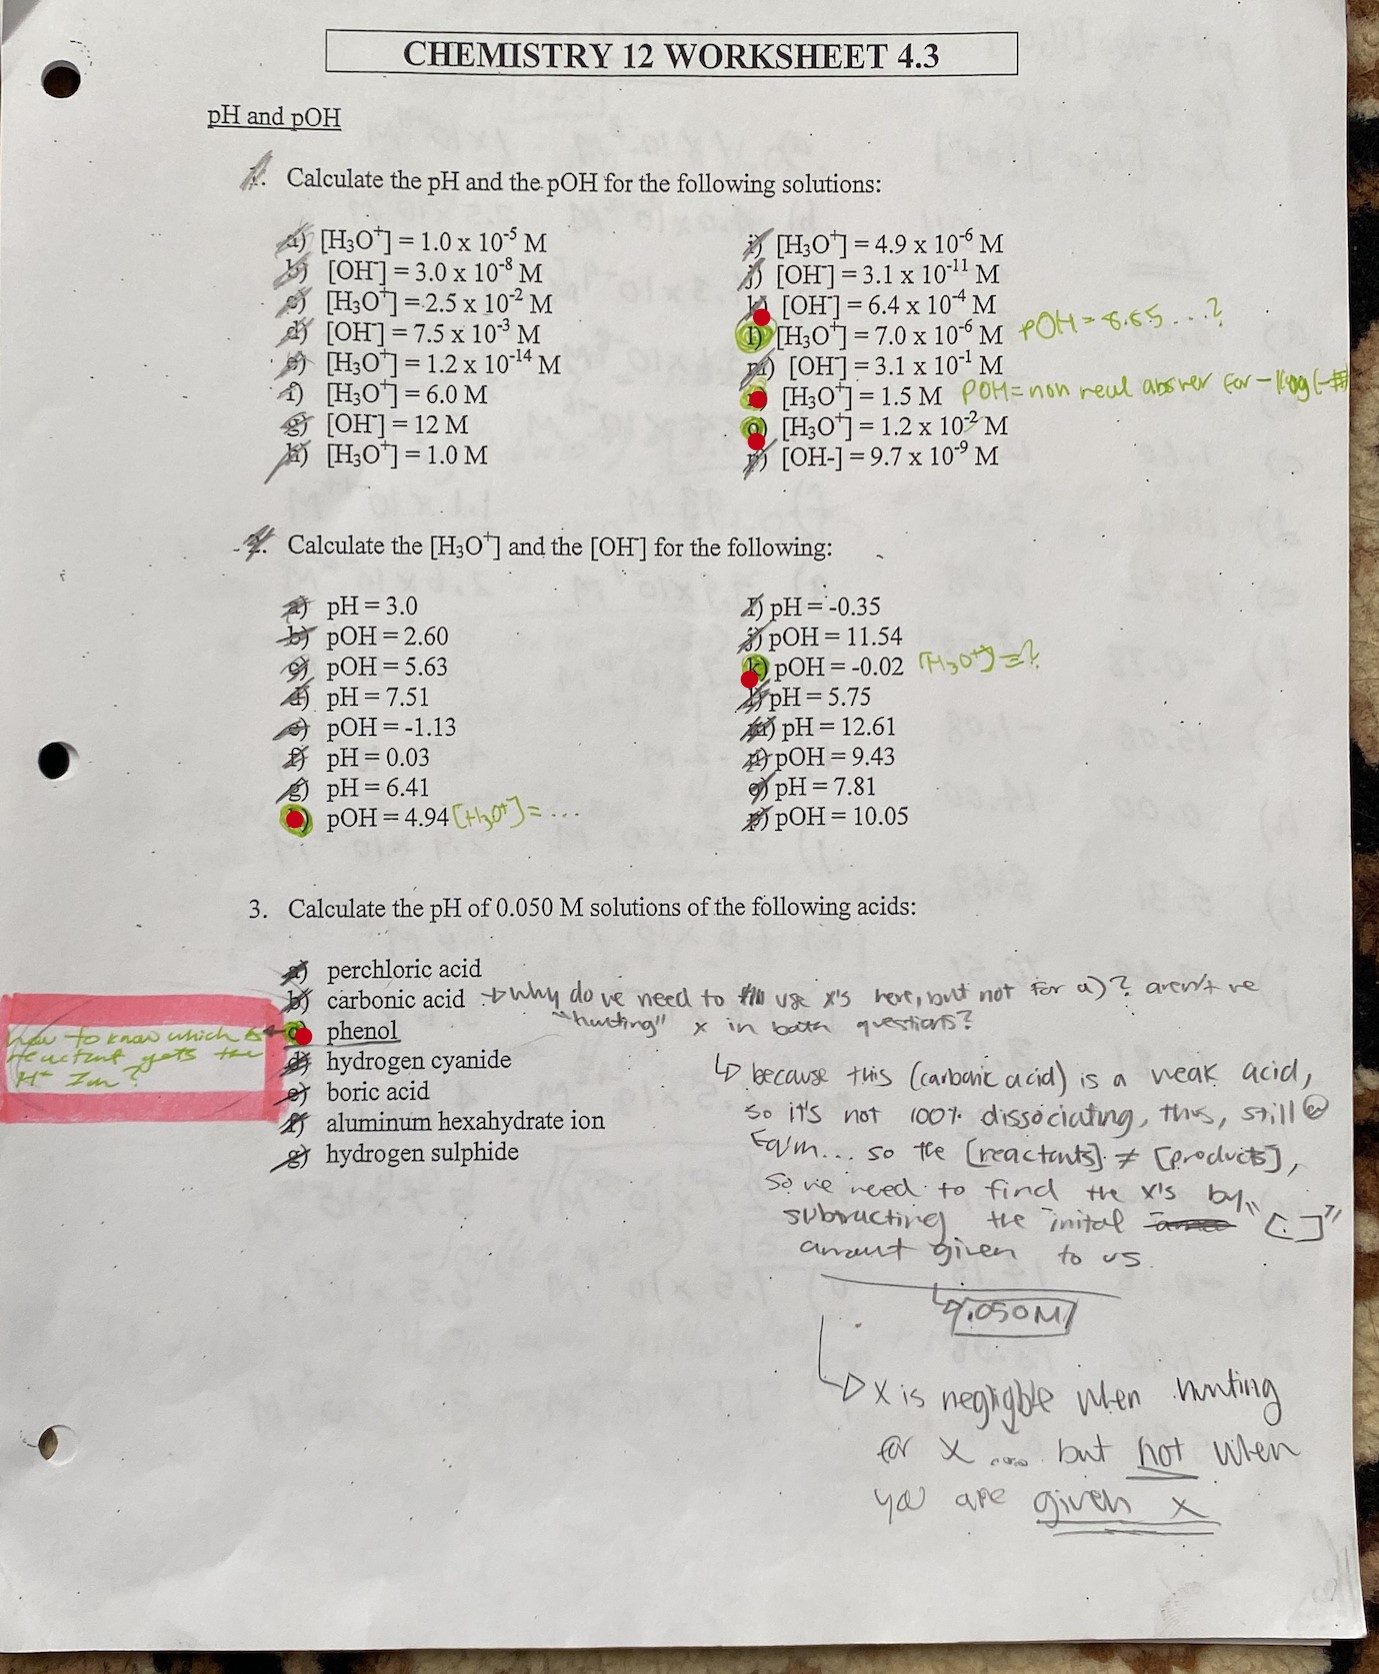 CHEMISTRY 12 WORKSHEET 4.3
pH and pOH
1. Calculate the pH and the pOH for the following solutions:
a) [H3O+] = 1.0 x 10-5 M
b) [OH-] = 3.0 x 10-8 M
c) [H3O+] = 2.5 x 10-2 M
d) [OH-] = 7.5 x 10-3 M
e) [H3O+] = 1.2 x 10-14 M
f) [H3O+] = 6.0 M
g) [OH-] = 12 M
h) [H3O+] = 1.0 M
i) [H3O+] = 4.9 x 10-6 M
j) [OH-] = 3.1 x 10-11 M
k) [OH-] = 6.4 x 10-4 M
l) [H3O+] = 7.0 x 10-6 M pOH = 8.85 ...?
m) [OH-] = 3.1 x 10-1 M
[H3O+] = 1.5 M POH = non real answer for - log (-#
o) [H3O+] = 1.2 x 10-2 M
p) [OH-] = 9.7 x 10-9 M
2. Calculate the [H3O+] and the [OH-] for the following:
a) pH = 3.0
b) pOH = 2.60
c) pOH = 5.63
d) pH = 7.51
e) pOH = -1.13
f) pH = 0.03
g) pH = 6.41
h) pOH = 4.94 [H3O+] = ...
I) pH = -0.35
j) pOH = 11.54
k) pOH = -0.02 [H3O+] = ?
l) pH = 5.75
m) pH = 12.61
n) pOH = 9.43
o) pH = 7.81
p) pOH = 10.05
3. Calculate the pH of 0.050 M solutions of the following acids:
a) perchloric acid
b) carbonic acid → why do we need to use x's here, but not for a)? aren't we
"hunting" x in both questions?
c) phenol
d) hydrogen cyanide
e) boric acid
f) aluminum hexahydrate ion
g) hydrogen sulphide
how to know which
reactant gets the
H+ Ion?
↳ because this (carbonic acid) is a weak acid,
so it's not 100% dissociating, thus, still @
Eq'm... so the [reactants] ≠ [products],
so we need to find the x's by
subtracting the inital "[ ]"
amount given to us
.050M
↳ x is negligble when hunting
for x .... but not when
you are given x